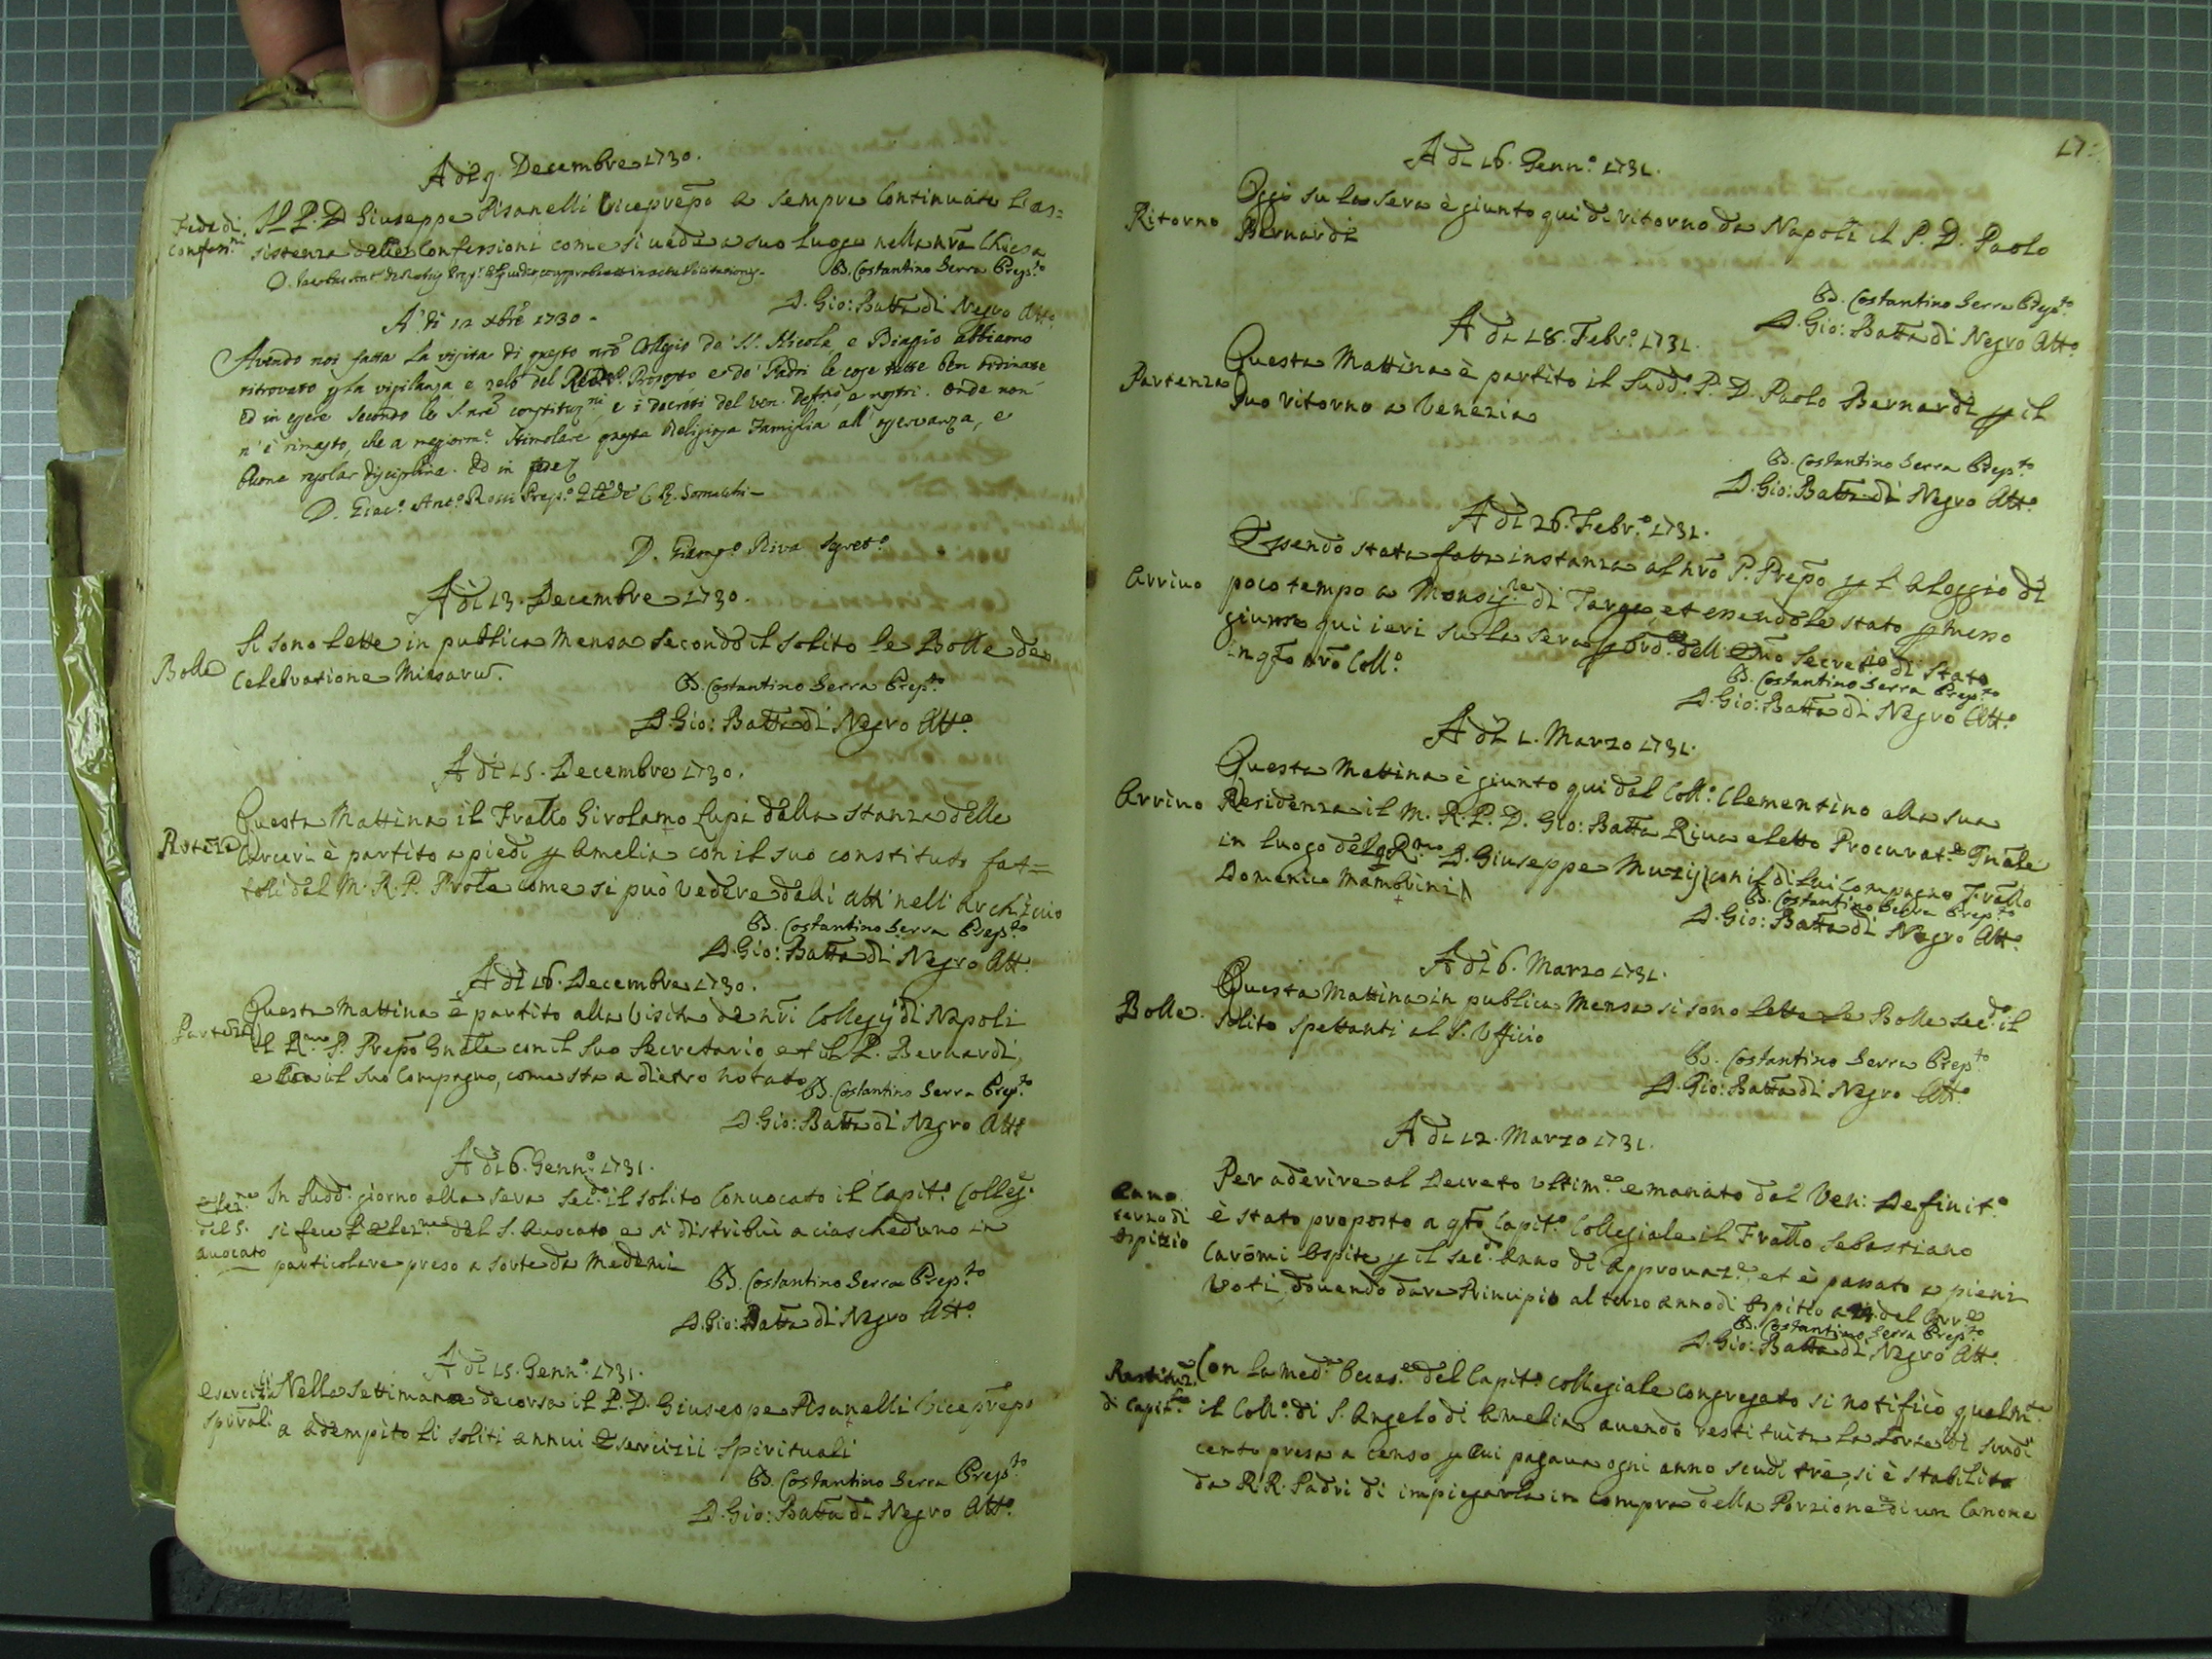 A dì 9. Decembre 1730.
Fede di Il P. D. Giuseppe Pisanelli Viceprepō a sempre Continuato l'as=
Confess.ni sistenza delle Confessioni come si vede a suo luogo nella nr̄a Chiesa
D. Costantino Serra Prep.to
D. Gio: Batta di Negro Att.o
A' di 12 Xbre 1730 -
Avendo noi fatta la visita di questo nrō Collegio de' SS. Nicola e Biagio abbiamo
ritrovato p la vigilanza e zelo del Proposto e de' Padri le cose tutte ben ordinate
ed in essere secondo le S. nrē constituz.ni e i decreti del Ven. Defno, e nostri. Onde non
n' è rimasto, che a maggiorm.e stimolare questa Religiosa Famiglia all' osservanza, e
buona regolar disciplina. Ed in fede
D. Giac.o Ant.o Rossi Prep.o Gnle de C. R. Somaschi -
D. Giamp.o Riva Segret.o
A dì 13. Decembre 1730.
Si sono lette in publica Mensa secondo il solito le Bolle de
Bolle Celebratione Missarū.
D. Costantino Serra Prep.to
D. Gio: Batta di Negro Att.o
A dì 15. Decembre 1730.
Questa Mattina il Fratlo Girolamo Lupi dalla stanza delle
Carceri è partito a piedi p Amelia con il suo constituto fat=
toli dal M. R. P. Prōle come si può vedere dadi atti nell' Archivio
D. Costantino Serra Prep.to
D. Gio: Batta di Negro Att.
A dì 16. Decembre 1730.
Questa Mattina è partito alla Visita de nrī Collegij di Napoli
Partenza il R.mo P. Prepō Gnāle con il suo Secretario et il P. Bernardi,
e il suo Compagno, come sta a dietro notato
D. Costantino Serra Prep.to
D. Gio: Batta di Negro Att.
A dì 6. Genn.o 1731.
Elez.ne In sudd.o giorno alla sera sec.do il solito Convocato il Capit.o Colleg.e
del S. si fece l'Elez.ne del S. Avocato, e si distribuì a ciascheduno in
Avocato particolare preso a sorte da Medemi
D. Costantino Serra Prep.to
D. Gio: Batta di Negro Att.o
A dì 15. Genn.o 1731.
Esercizii Nella Settimana decorsa il P. D. Giuseppe Pisanelli Viceprepō
Spirāli a adempito li soliti annui Esercizii Spirituali
D. Costantino Serra Prep.to
D. Gio: Batta di Negro Att.o
17.
A dì 16. Genn.o 1731.
Oggi su la sera è giunto qui di ritorno da Napoli il P. D. Paolo
Ritorno Bernardi
D. Costantino Serra Prep.to
D. Gio: Batta di Negro Att.o
A dì 18. Febr.o 1731.
Questa Mattina è partito il sudd.o P. D. Paolo Bernardi p il
Partenza suo ritorno a Venezia
D. Costantino Serra Prep.to
D. Gio: Batta di Negro Att.o
A dì 26. Febr.o 1731.
Essendo stata fatta instanza al nrō P. Prepō p l'aloggio di
Arrivo poco tempo a Monsig.re di Targa, et essendole stato pmesso
giunse qui ieri su la sera p ord.e dell' Emo Secret.rio di Stato
in qto nrō Coll.o
D. Costantino Serra Prep.to
D. Gio: Batta di Negro Att.o
A dì 1. Marzo 1731.
Questa Mattina è giunto qui dal Coll.o Clementino alla sua
Arrivo Residenza il M. R. P. D. Gio: Batta Riva eletto Procurat.e Gnāle
in luogo del R.mo D. Giuseppe Muzij con il di lui Compagno Fratlo
Domenico Mambrini
D. Costantino Serra Prep.to
D. Gio: Batta di Negro Att.o
A dì 6. Marzo 1731.
Questa Mattina in publica Mensa si sono lette le Bolle sec.do il
Bolle. solito spettanti al S. Uffizio
D. Costantino Serra Prep.to
D. Gio: Batta di Negro Att.o
A dì 12. Marzo 1731.
Per aderire al Decreto ultim.e emanato dal Ven: Definit.o
Anno è stato proposto a qto Capit.o Collegiale il Fratlo Sebastiano
terzo di Carōmi Ospite p il sec.do Anno di Approvaz.e, et è passato a pieni
Ospizio Voti, dovendo dare Principio al terzo anno di Ospizio a del Corr.e
D. Costantino Serra Prep.to
D. Gio: Batta di Negro Att.
Restituz. Con la med.a Occas.e del Capit.o Collegiale congregato si notificò qualm.te
di Capit.le il Coll.o di S. Angelo di Amelia avendo restituita la sorte di scudi
cento presa a censo p cui pagava ogni anno scudi trè, si è stabilito
da R.R. Padri di impiegarla in compra della Porzione di un Canone